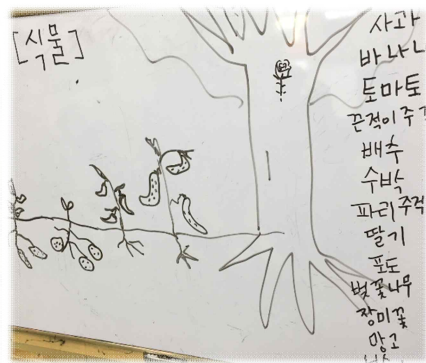 [식물]
사과
바나나
토마토
끈적이주걱
배추
수박
파리주걱
딸기
포도
벚꽃나무
장미꽃
망고